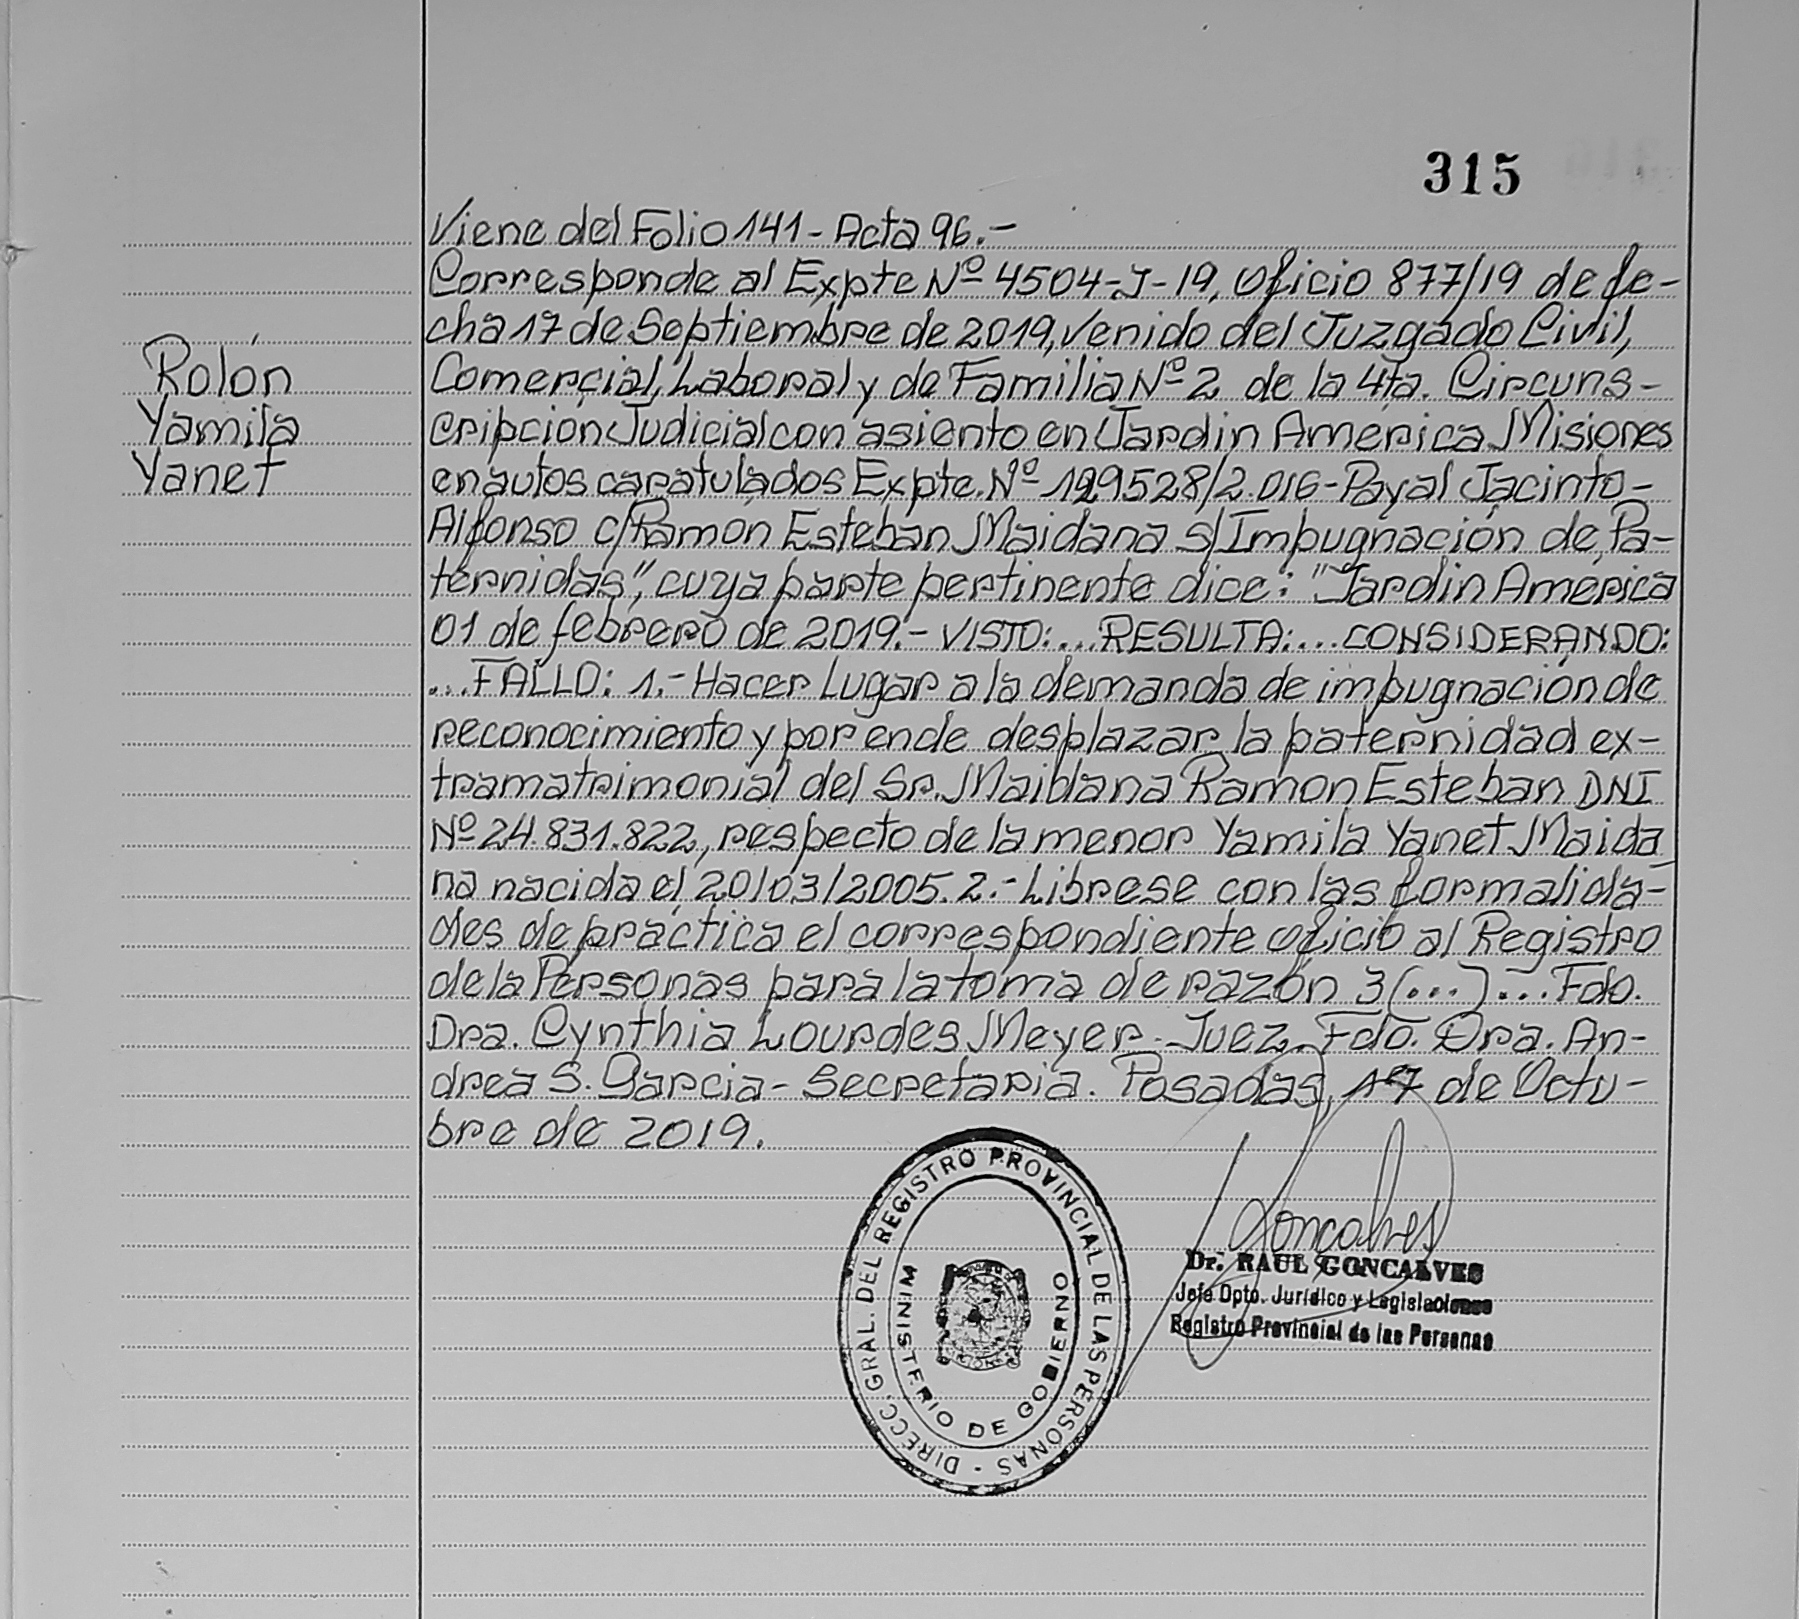 315
Viene del Folio 141 - Acta 96.-
Corresponde al Expte Nº 4504-J-19, oficio 877/19 de fe-
cha 17 de Septiembre de 2019, venido del Juzgado Civil,
Comercial, Laboral y de Familia Nº 2 de la 4ta. Circuns-
cripción Judicial con asiento en Jardin America Misiones
en autos caratulados Expte. Nº 129528/2.016 - Payal Jacinto-
Alfonso c/ Ramón Esteban Maidana s/ Impugnación de Pa-
ternidas", cuya parte pertinente dice: "Jardin América
01 de febrero de 2019.- VISTO:...RESULTA:...CONSIDERANDO:
...FALLO: 1.- Hacer Lugar a la demanda de impugnación de
reconocimiento y por ende desplazar la paternidad ex-
tramatrimonial del Sr. Maidana Ramon Esteban DNI
Nº 24.831.822, respecto de la menor Yamila Yanet Maida
na nacida el 20/03/2005. 2.- Librese con las formalida-
des de práctica el correspondiente oficio al Registro
de la Personas para la toma de razón 3(...)...Fdo.
Dra. Cynthia Lourdes Meyer - Juez. Fdo. Dra. An-
drea S. Garcia - Secretaria. Posadas, 17 de Octu-
bre de 2019.
Rolón
Yamila
Yanet
DIRECC. GRAL. DEL REGISTRO PROVINCIAL DE LAS PERSONAS -
MINISTERIO DE GOBIERNO
Goncalves
Dr. RAUL GONCALVES
Jefe Dpto. Jurídico y Legislaciones
Registro Provincial de las Personas